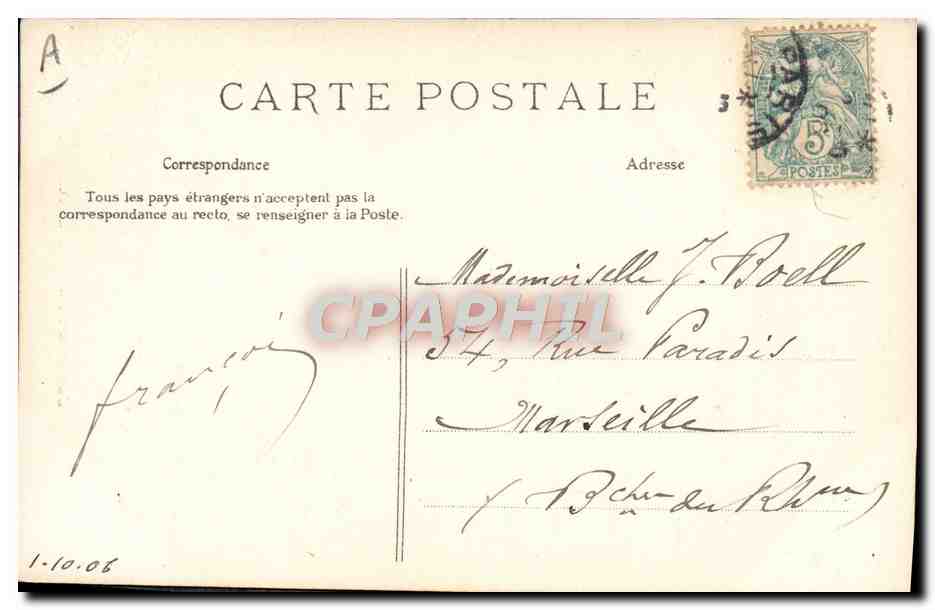 A
CARTE POSTALE
Correspondance
Adresse
Tous les pays étrangers n'acceptent pas la
correspondance au recto, se renseigner à la Poste.
PARIS
3
5
POSTES
Mademoiselle J. Boell
54, Rue Paradis
Marseille
(Bches du Rhône)
françois
1-10-06
CPAPHIL